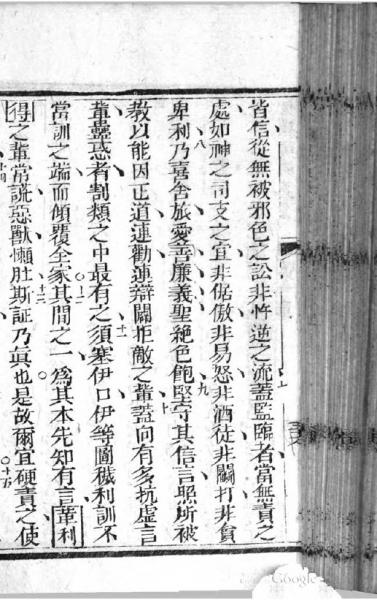 皆信從無被邪色之訟非忤逆之流蓋監臨者當無責之
處如神之司支之宜非倨傲非易怒非酒徒非鬬打非貪
卑利乃喜舍旅愛善廉義聖絕色飽堅守其信言照所被
教以能因正道連勸連辯闢拒敵之輩蓋尚有多抗虛言
輩蠱惑者割類之中最有之須塞伊口伊等圖穢利訓不
當訓之端而傾覆全家其間之一為其本先知有言革利
得之輩常謊惡獸懶肚斯証乃真也是故爾宜硬責之使
Google